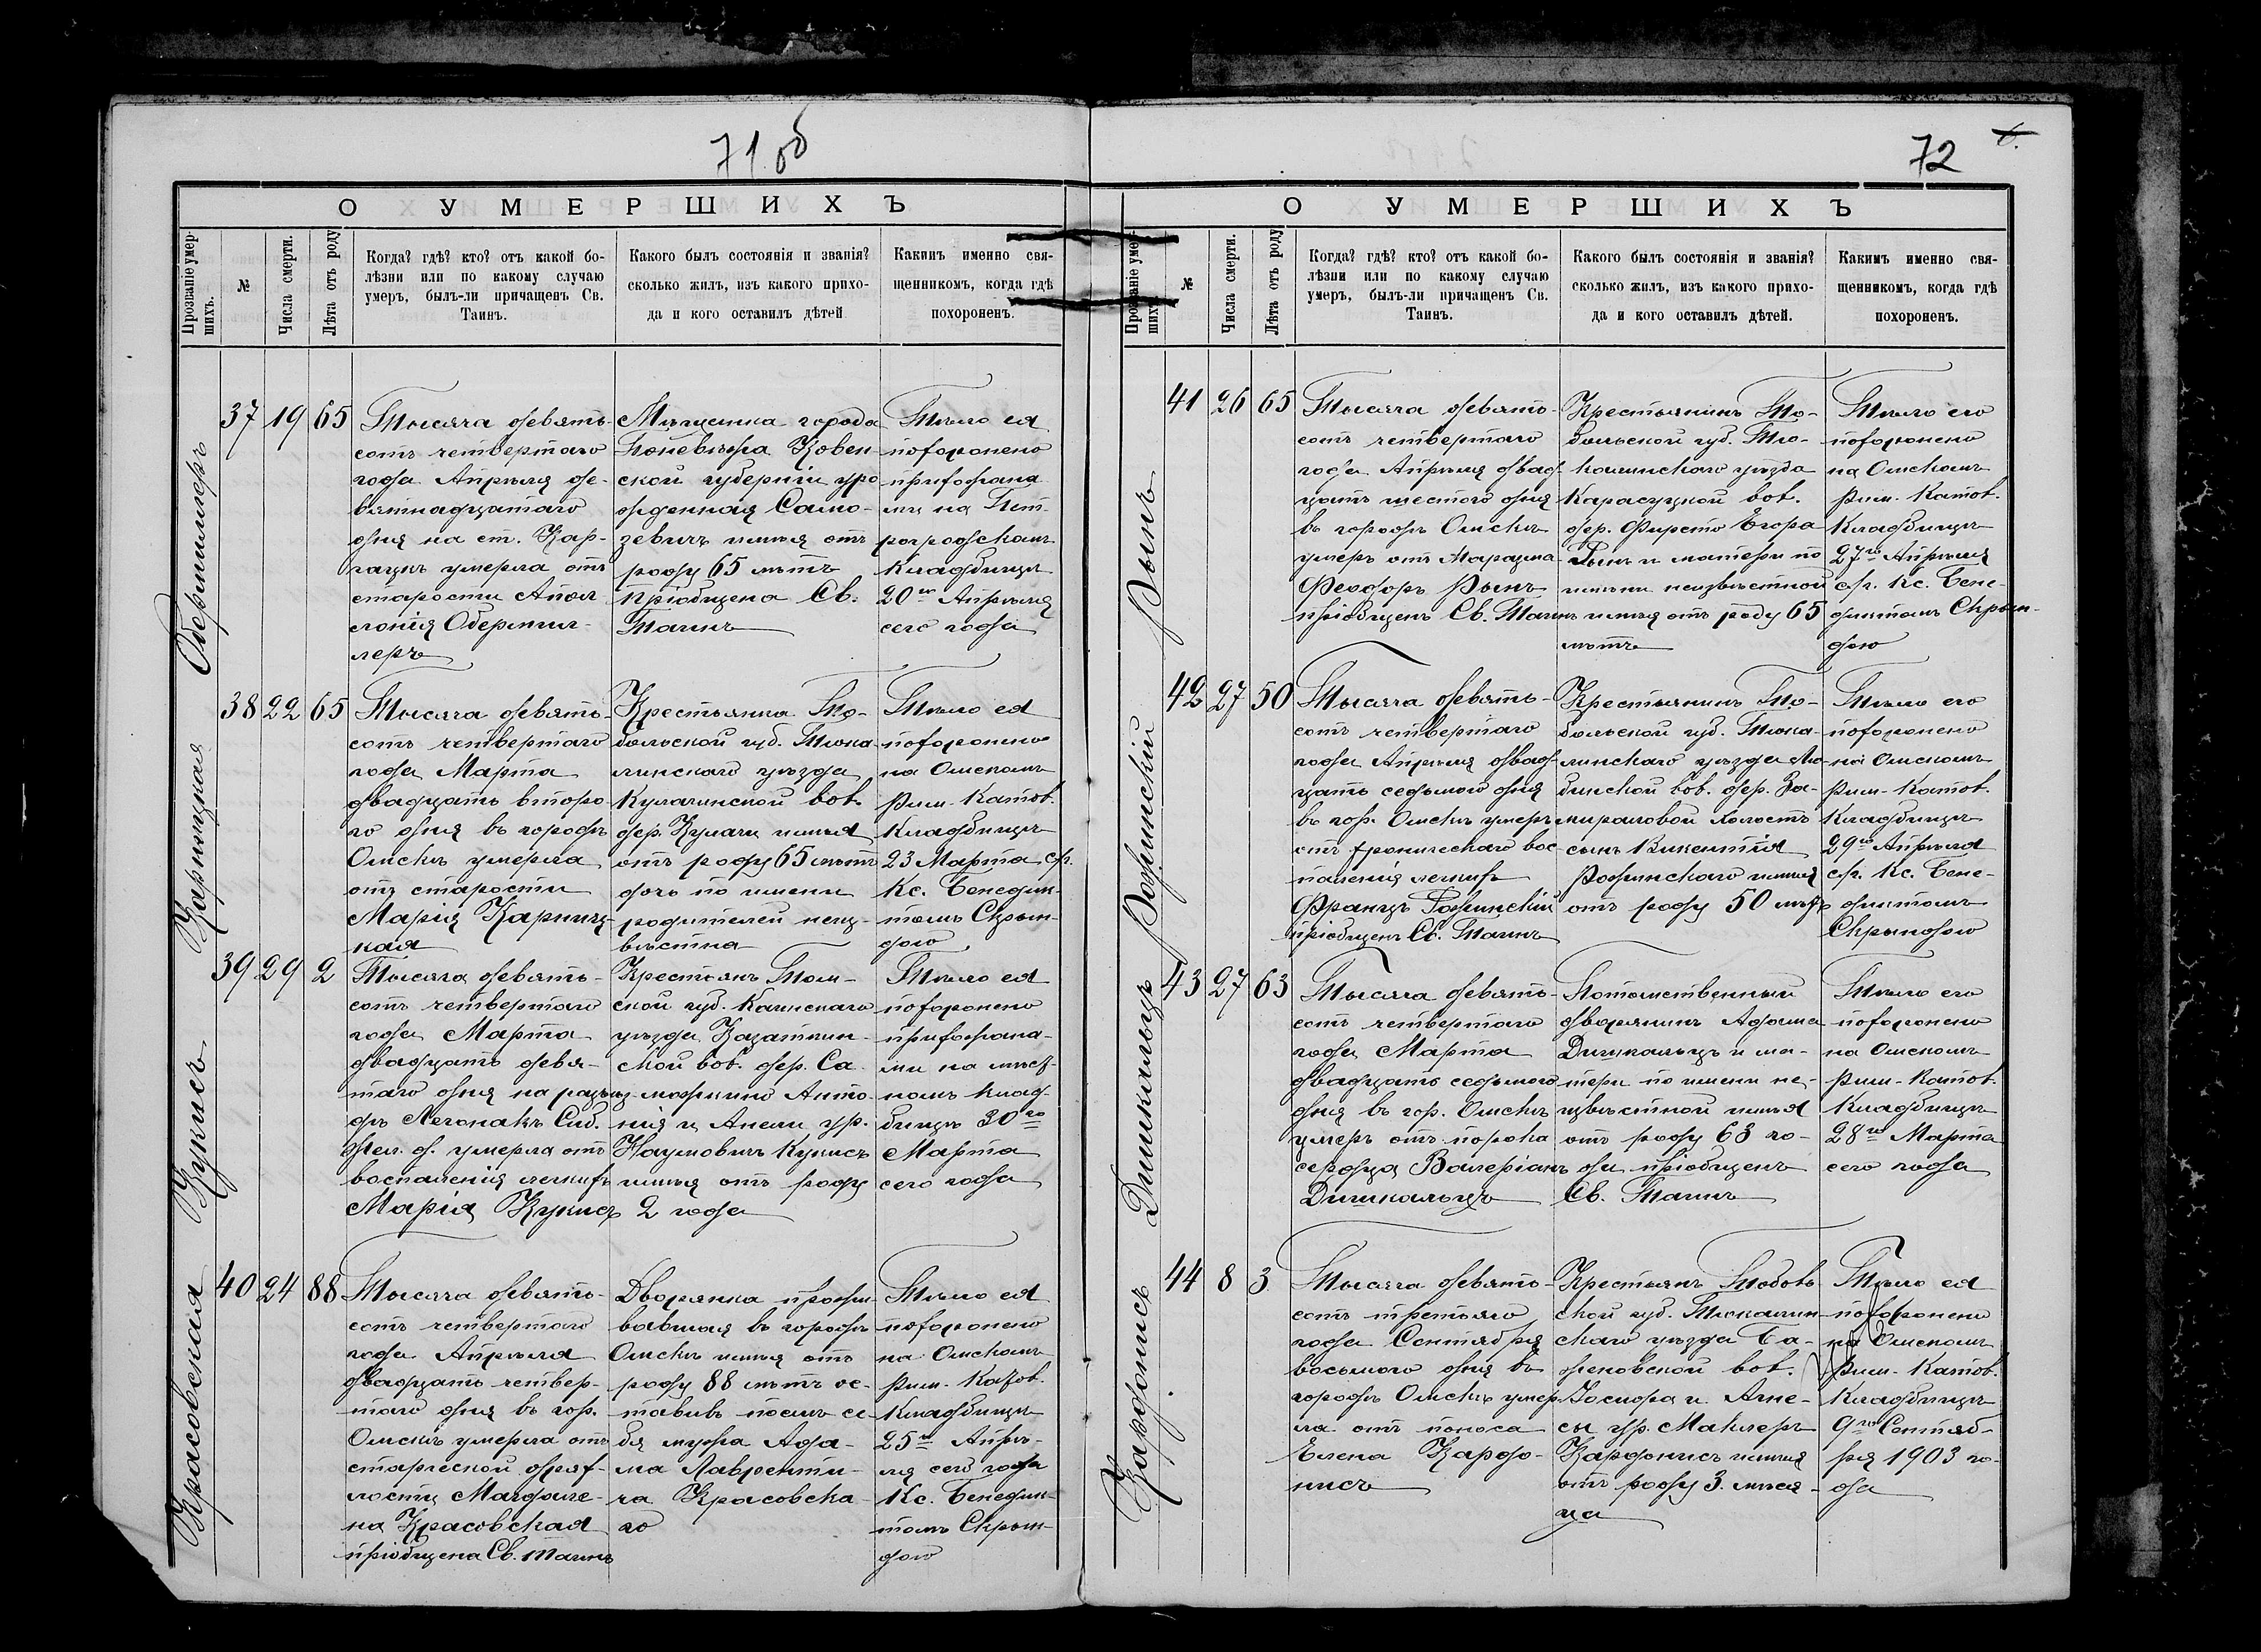 71.об
О УМЕРШИХЪ
Прозваніе умер-
шихъ.
№
Числа смерти.
Лѣта отъ роду
Когда? гдѣ? кто? отъ какой бо-
лѣзни или по какому случаю
умеръ, былъ-ли причащенъ Св.
Таинъ.
Какого былъ состоянія и званія?
сколько жилъ, изъ какого прихо-
да и кого оставилъ дѣтей
Какимъ именно свя-
щенникомъ, когда гдѣ
похороненъ.
Обермиллеръ
37 19 65
Тысяча девять-
сотъ четвертаго
года Апрѣля де-
вятнадцатаго
дня на ст. Кар-
гатъ умерла отъ
старости Апол-
лонія Обермил-
леръ
Мѣщанка города
Поневѣжа Ковен-
ской губерніи уро
жденная Само-
зевичъ имѣя отъ
роду 65 лѣтъ
пріобщена Св.
Таинъ
Тѣло ея
похоронено
прихожана
ми на
кладбищѣ
20го Апрѣля
сего года
Карницкая
38 22 65
Тысяча девять-
сотъ четвертаго
года Марта
двадцать второ-
го дня въ городѣ
Омскѣ умерла
отъ старости
Марія Карниц-
кая
Крестьянка То-
больской губ. Тюка-
линскаго уѣзда
Кулачинской вол.
дер. Кулачи имѣя
отъ роду 65 лѣтъ
дочь по имени
родителей неиз-
вѣстна
Тѣло ея
похоронено
на Омскомъ
Рим-Катол.
кладбищѣ
23 Марта с/г.
Кс. Бенедик-
томъ Скрын-
дою
Кукисъ
39 29 2
Тысяча девять-
сотъ четвертаго
года Марта
двадцать девя-
таго дня на разъѣз-
дѣ Сиб.
жел. д. умерла отъ
воспаленія легкихъ
Марія Кукисъ
Крестьянъ Том-
ской губ. Каинскаго
уѣзда Казаткин-
ской вол. дер. Са-
можкино Анто-
нія и Анели ур.
Наумовичъ Кукисъ
имѣя отъ роду
2 года
Тѣло ея
похоронено
прихожана-
ми на мѣст-
номъ клад-
бищѣ 30го
Марта
сего года
Красовская
40 24 88
Тысяча девять-
сотъ четвертаго
года Апрѣля
двадцать четвер-
таго дня въ гор.
Омскѣ умерла отъ
старческой дрях-
лости Магдале-
на Красовская
пріобщена Св. Таинъ
Дворянка прожи-
вавшая въ городѣ
Омскѣ имѣя отъ
роду 88 лѣтъ ос-
тавивъ послѣ се-
бя мужа Ада-
ма Лаврентіи-
ча Красовска-
го
Тѣло ея
похоронено
на Омскомъ
Рим-Катол.
кладбищѣ
25го Апрѣ-
ля сего года
Кс. Бенедик-
томъ Скрын-
дою
72
О УМЕРШИХЪ
Прозваніе умер-
шихъ.
№
Числа смерти.
Лѣта отъ роду
Когда? гдѣ? кто? отъ какой бо-
лѣзни или по какому случаю
умеръ, былъ-ли причащенъ Св.
Таинъ.
Какого былъ состоянія и званія?
сколько жилъ, изъ какого прихо-
да и кого оставилъ дѣтей.
Какимъ именно свя-
щенникомъ, когда гдѣ
похороненъ.
Рынъ
41 26 65
Тысяча девять-
сотъ четвертаго
года Апрѣля двад-
цать шестого дня
въ городѣ Омскѣ
умеръ отъ маразма
Феодоръ Рынъ
пріобщенъ Св. Таинъ
Крестьянинъ То-
больской губ. Тю-
калинскаго уѣзда
Карасукской вол.
дер. Егора
Рынъ и матери по
имени неизвѣстной
имѣя отъ роду 65
лѣтъ
Тѣло его
похоронено
на Омскомъ
Рим. Катол.
кладбищѣ
27го Апрѣля
с/г. Кс. Бене-
диктомъ Скрын-
дою
Рожинскій
42 27 50
Тысяча девять-
сотъ четвертаго
года Апрѣля двад-
цать седьмого дня
въ гор. Омскѣ умеръ
отъ хроническаго вос-
паленія легкихъ
Францъ Рожинскій
пріобщенъ Св. Таинъ
Крестьянинъ То-
больской губ. Тюка-
линскаго уѣзда Лю-
бинской вол. дер. За-
мираловой холостъ
сынъ Викентія
Рожинскаго имѣя
отъ роду 50 лѣтъ
Тѣло его
похоронено
на Омскомъ
Рим-Катол.
кладбищѣ
29го Апрѣля
с/г. Кс. Бене-
диктомъ
Скрындою
Дишкальцъ
43 27 63
Тысяча девять-
сотъ четвертаго
года Марта
двадцать седьмого
дня въ гор. Омскѣ
умеръ отъ порока
сердца Валеріанъ
Дишкальцъ
Потомственный
дворянинъ Адама
Дишкальцъ и ма-
тери по имени не-
извѣстной имѣя
отъ роду 63 го-
да пріобщенъ
Св. Таинъ
Тѣло его
похоронено
на Омскомъ
Рим-Катол.
кладбищѣ
28го Марта
сего года
Кардонисъ
44 8 3
Тысяча девять-
сотъ третьяго
года Сентября
восьмого дня въ
городѣ Омскѣ умер-
ла отъ поноса
Елена Кардо-
нисъ
Крестьянъ Тоболь-
ской губ. Тюкалин-
скаго уѣзда Ба-
женовской вол.
и Агне-
сы ур. Маклеръ
Кардонисъ имѣя
отъ роду 3 мѣся-
ца
Тѣло ея
похоронено
на Омскомъ
Рим-Катол.
кладбищѣ
9го Сентяб-
ря 1903 го-
да